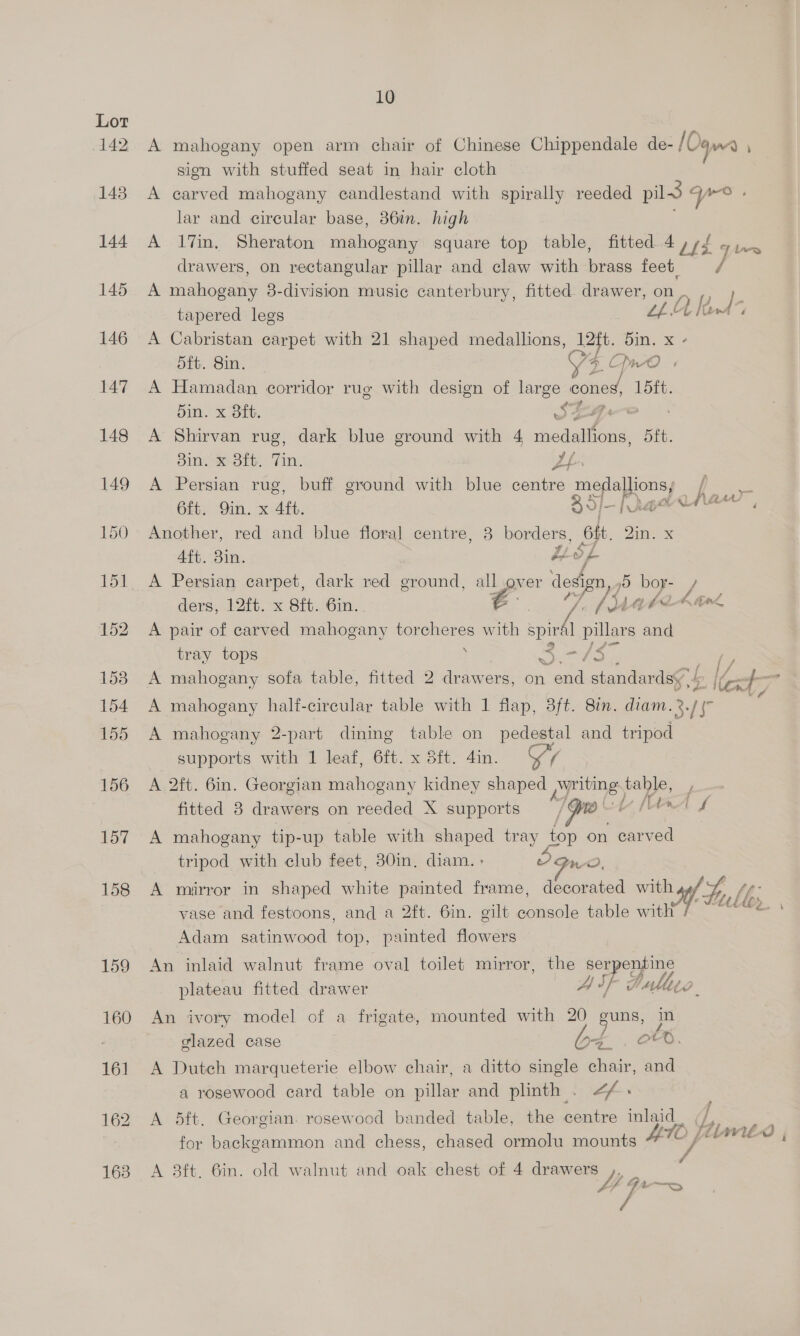 10
Lot
142 A mahogany open arm chair of Chinese Chippendale de-
sign with stuffed seat in hair cloth
143 A carved mahogany candlestand with spirally reeded pil-
lar and circular base, 36in. high
144 A 17in. Sheraton mahogany square top table, fitted 4
drawers, on rectangular pillar and claw with brass feet
145 A mahogany 3-division music canterbury, fitted drawer, on
tapered legs
146 A Cabristan carpet with 21 shaped medallions, 12ft. 5in. x
5ft. 8in.
147 A Hamadan corridor rug with design of large cones, 15ft.
5in. x 3ft.
148 A Shirvan rug, dark blue ground with 4 medallions, 5ft.
3in. x 3ft. 7in.
149 A Persian rug, buff ground with blue centre medallions,
6ft. 9in. x 4ft. 35/-
150 Another, red and blue floral centre, 3 borders, 6ft. 2in. x
4ft. 3in.
151 A Persian carpet, dark red ground, all over design, 5 bor-
ders, 12ft. x 8ft. 6in.
152 A pair of carved mahogany torcheres with spiral pillars and
tray tops 3-15
153 A mahogany sofa table, fitted 2 drawers, on end standards
154 A mahogany half-circular table with 1 flap, 3ft. 8in. diam.
155 A mahogany 2-part dining table on pedestal and tripod
supports with 1 leaf, 6ft. x 3ft. 4in.
156 A 2ft. 6in. Georgian mahogany kidney shaped writing table,
fitted 3 drawers on reeded X supports
157 A mahogany tip-up table with shaped tray top on carved
tripod with club feet, 30in. diam.
158 A mirror in shaped white painted frame, decorated with
vase and festoons, and a 2ft. 6in. gilt console table with
Adam satinwood top, painted flowers
159 An inlaid walnut frame oval toilet mirror, the serpentine
plateau fitted drawer
160 An ivory model of a frigate, mounted with 20 guns, in
glazed case
161 A Dutch marqueterie elbow chair, a ditto single chair, and
a rosewood card table on pillar and plinth
162 A 5ft. Georgian rosewood banded table, the centre inlaid
for backgammon and chess, chased ormolu mounts
163 A 3ft. 6in. old walnut and oak chest of 4 drawers